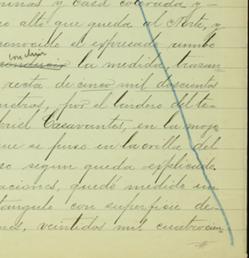 minas y casa colorada y
to alto que queda al Norte, y
conocido el espresado rumbo
conducir la medida, trazan-
recta de cinco mil doscientos
metros, por el lindero del te-
briel Casavantes, en la mojo-
que se puso en la orilla del
so segun queda esplicado
aciones, quedó medido un
tangulo con superficie de
nos, veintidos mil cuatrocien